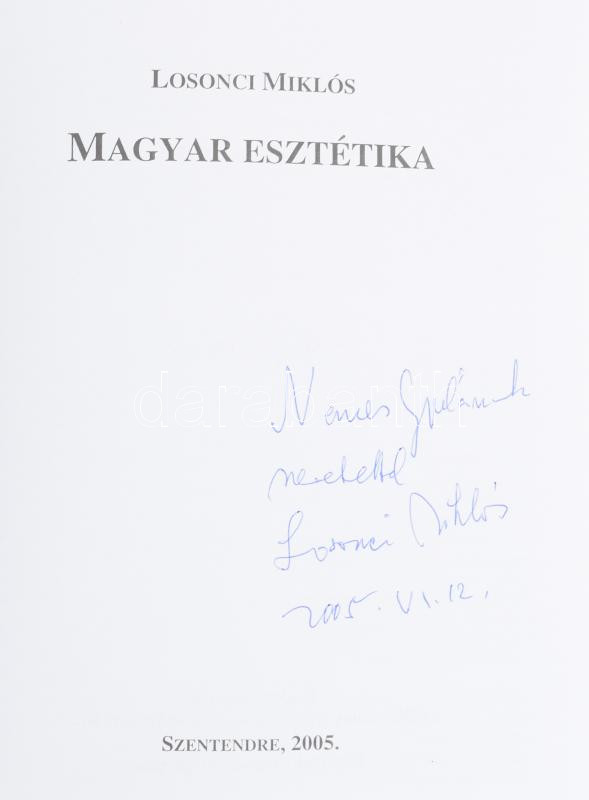 LOSONCI MIKLÓS
MAGYAR ESZTÉTIKA
darabanth
Nemes Gyulának
szeretettel
Losonci Miklós
2005. VI. 12.
SZENTENDRE, 2005.